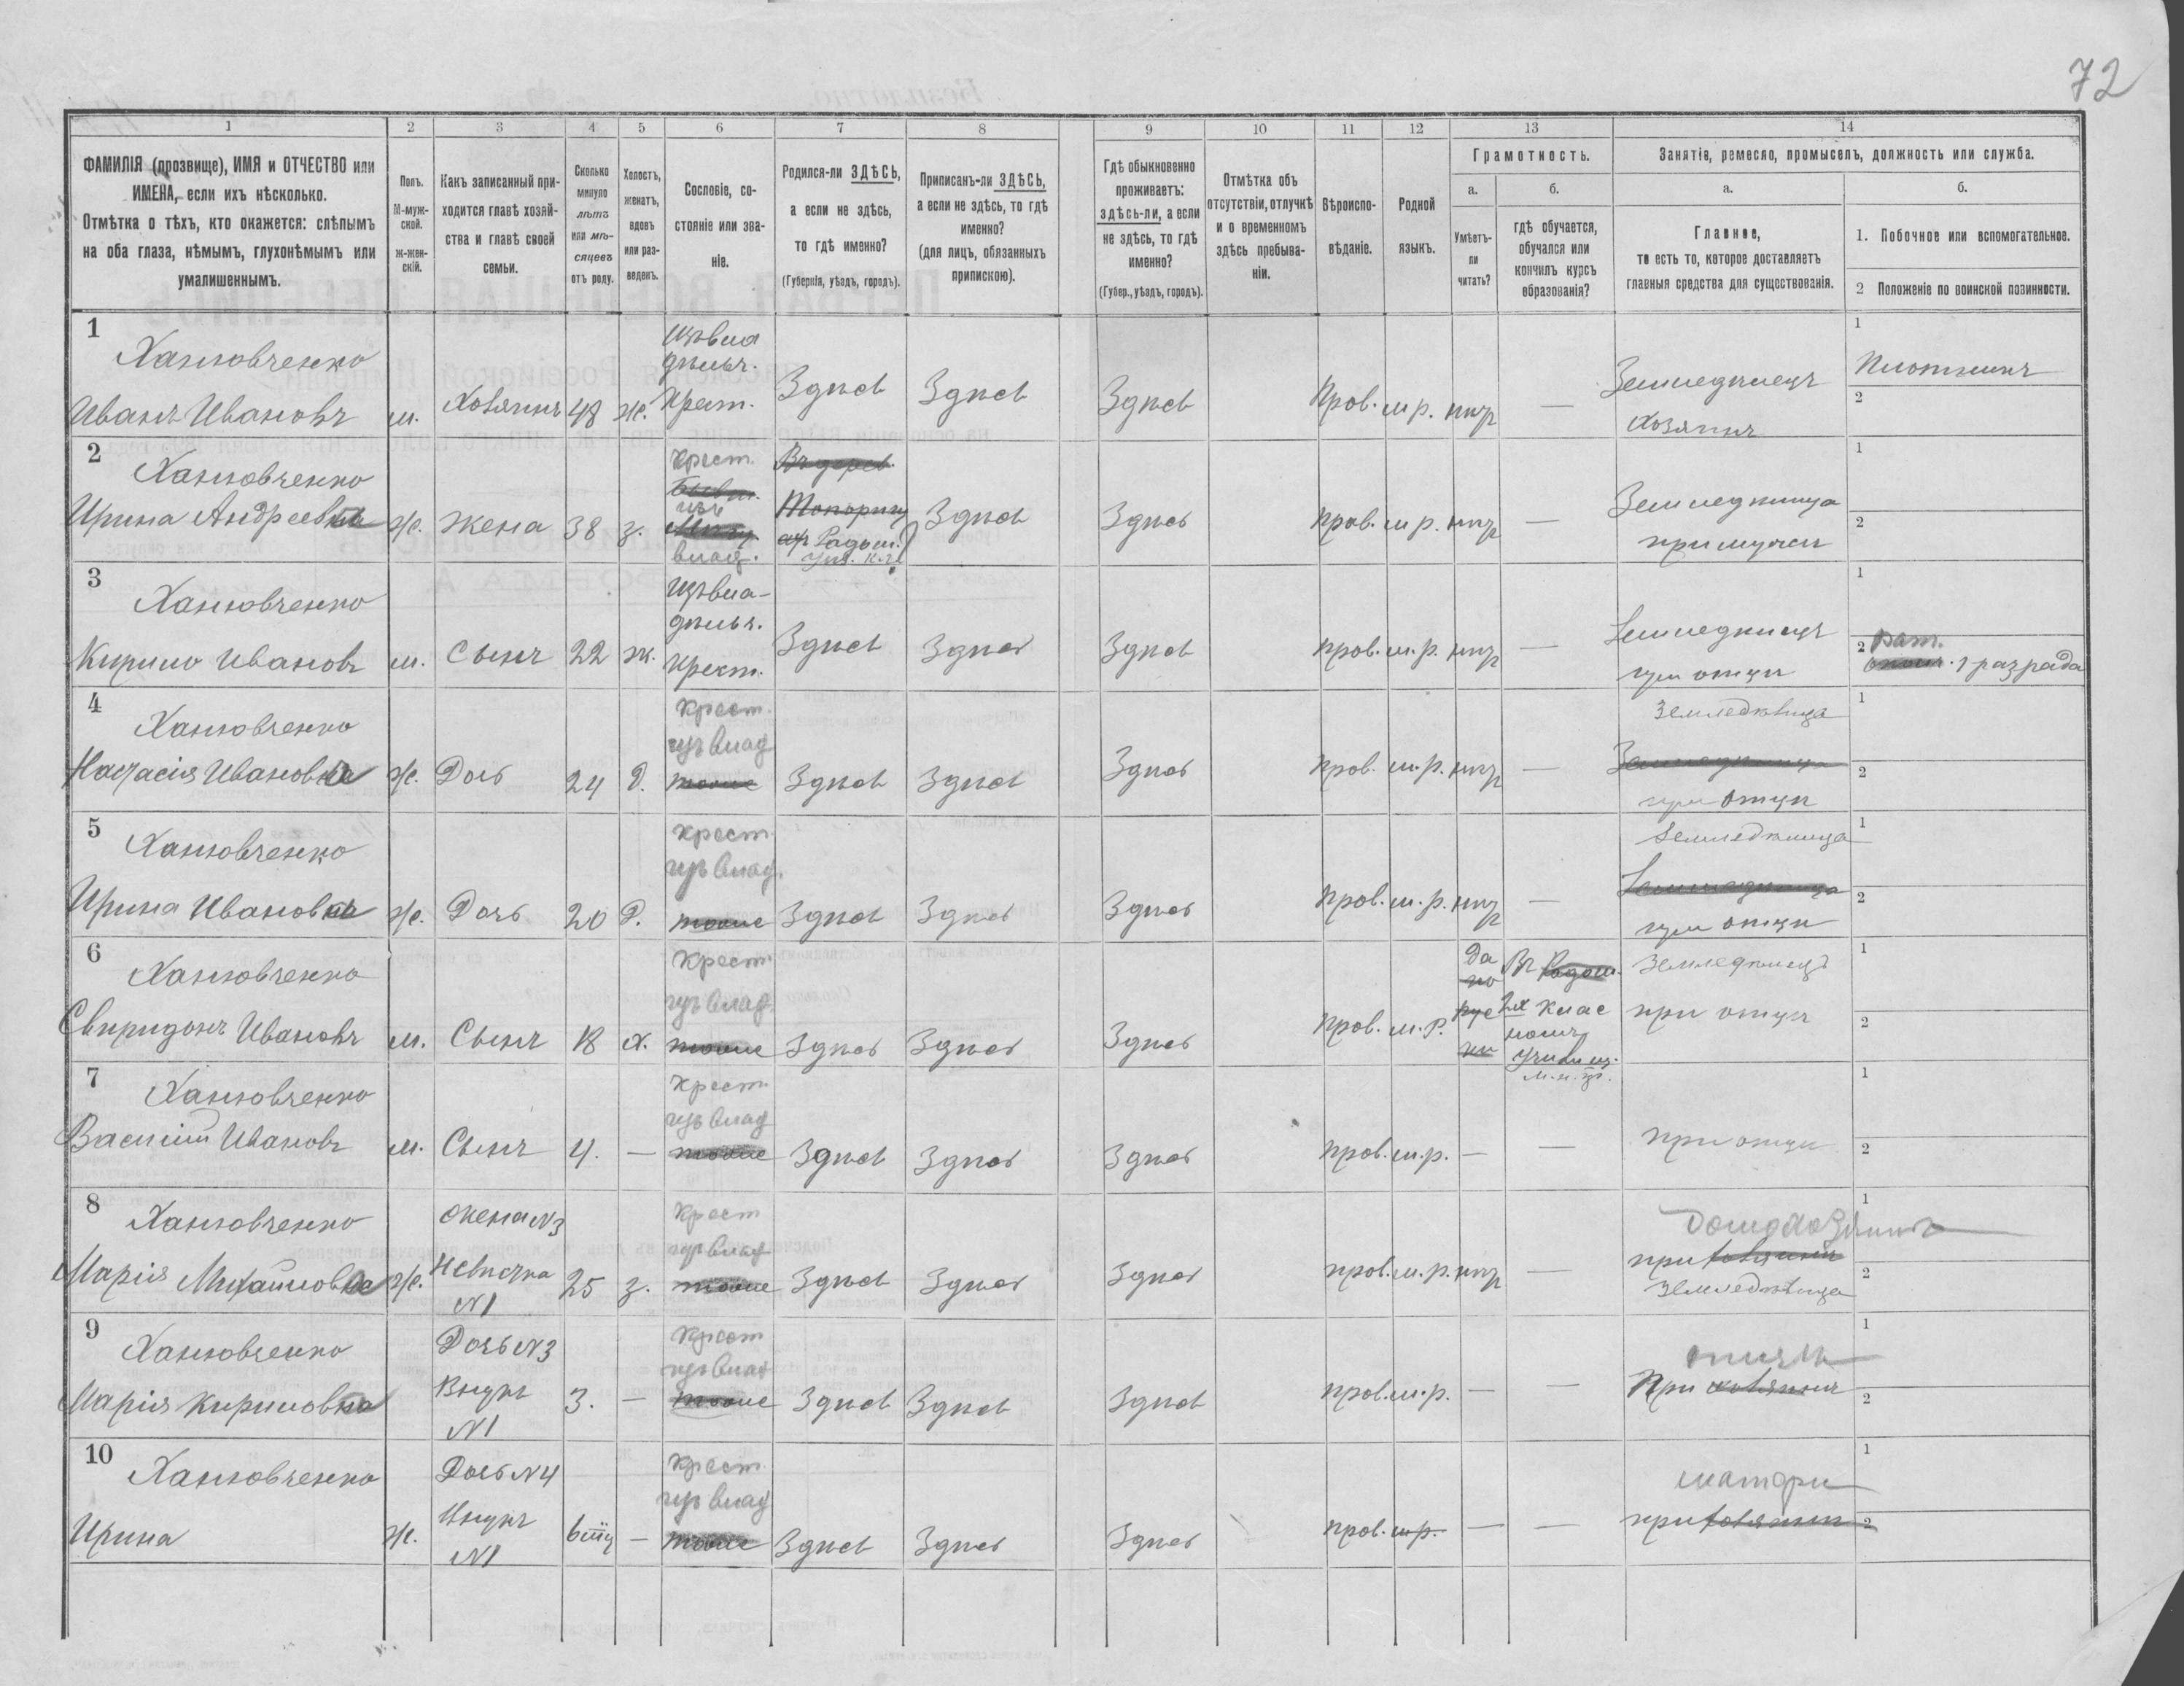 72
1 2 3 4 5 6 7 8 9 10 11 12 13 14
ФАМИЛІЯ (прозвище), ИМЯ и ОТЧЕСТВО или
ИМЕНА, если ихъ нѣсколько.
Отмѣтка о тѣхъ, кто окажется: слѣпымъ
на оба глаза, нѣмымъ, глухонѣмымъ или
умалишеннымъ.
Полъ.
М-муж-
ской.
ж-жен-
скій.
Какъ записанный при-
ходится главѣ хозяй-
ства и главѣ своей
семьи.
Сколько
минуло
лѣтъ
или мѣ-
сяцевъ
отъ роду.
Холостъ,
женатъ,
вдовъ
или раз-
веденъ.
Сословіе, со-
стояніе или зва-
ніе.
Родился-ли ЗДѢСЬ,
а если не здѣсь,
то гдѣ именно?
(Губернія, уѣздъ, городъ).
Приписанъ-ли ЗДѢСЬ,
а если не здѣсь, то гдѣ
именно?
(для лицъ, обязанныхъ
припискою).
Гдѣ обыкновенно
проживаетъ:
здѣсь-ли, а если
не здѣсь, то гдѣ
именно?
(Губер., уѣздъ, городъ).
Отмѣтка объ
отсутствіи, отлучкѣ
и о временномъ
здѣсь пребыва-
ніи.
Вѣроиспо-
вѣданіе.
Родной
языкъ.
Грамотность.
а.
Умѣетъ-
ли
читать?
б.
гдѣ обучается,
обучался или
кончилъ курсъ
образованія?
Занятіе, ремесло, промыселъ, должность или служба.
а.
Главное,
то есть то, которое доставляетъ
главныя средства для существованія.
б.
1. Побочное или вспомогательное.
2 Положеніе по воинской повинности.
1
Ханювченко
Иванъ Ивановъ м. Хозяинъ 48 ж. Крест. Здѣсь Здѣсь Здѣсь Прав. м.р. — Земледѣлецъ
хозяинъ
1 Плотникъ
2
2
Ханювченко
Ирина Андреевна ж. жена 38 з. крест. Здѣсь Здѣсь прав. м.р. — Земледѣлица
при мужѣ
1
2
3
Ханювченко
Кирило Ивановъ м. Сынъ 22 ж. Крест. Здѣсь Здѣсь Здѣсь прав. м.р. — Земледѣлецъ
при отцѣ
1
2 рат. 1 разряда
4
Ханювченко
Настасія Ивановна ж. Дочь 24 д. крест. Здѣсь Здѣсь Здѣсь прав. м.р. — Земледѣлица
при отцѣ
1
2
5
Ханювченко
Ирина Ивановна ж. Дочь 20 д. крест. Здѣсь Здѣсь Здѣсь прав. м.р. — Земледѣлица
при отцѣ
1
2
6
Ханювченко
Свиридонъ Ивановъ м. Сынъ 18 х. крест. Здѣсь Здѣсь Здѣсь прав. м.р. да Земледѣлецъ
при отцѣ
1
2
7
Ханювченко
Василій Ивановъ м. Сынъ 4. — крест. Здѣсь Здѣсь Здѣсь прав. м.р. — — при отцѣ
1
2
8
Ханювченко
Марія Михайловна ж. жена N3
Невѣстка
N1
25 з. крест. Здѣсь Здѣсь Здѣсь прав. м.р. — при
Земледѣлица
1
2
9
Ханювченко
Марія Кириловна Дочь N3
Внукъ
N1
3. — крест. Здѣсь Здѣсь Здѣсь прав. м.р. — — При
1
2
10
Ханювченко
Ирина ж. Дочь N4
Внукъ
N1
— крест. Здѣсь Здѣсь Здѣсь прав. м.р. — — матери
при
1
2